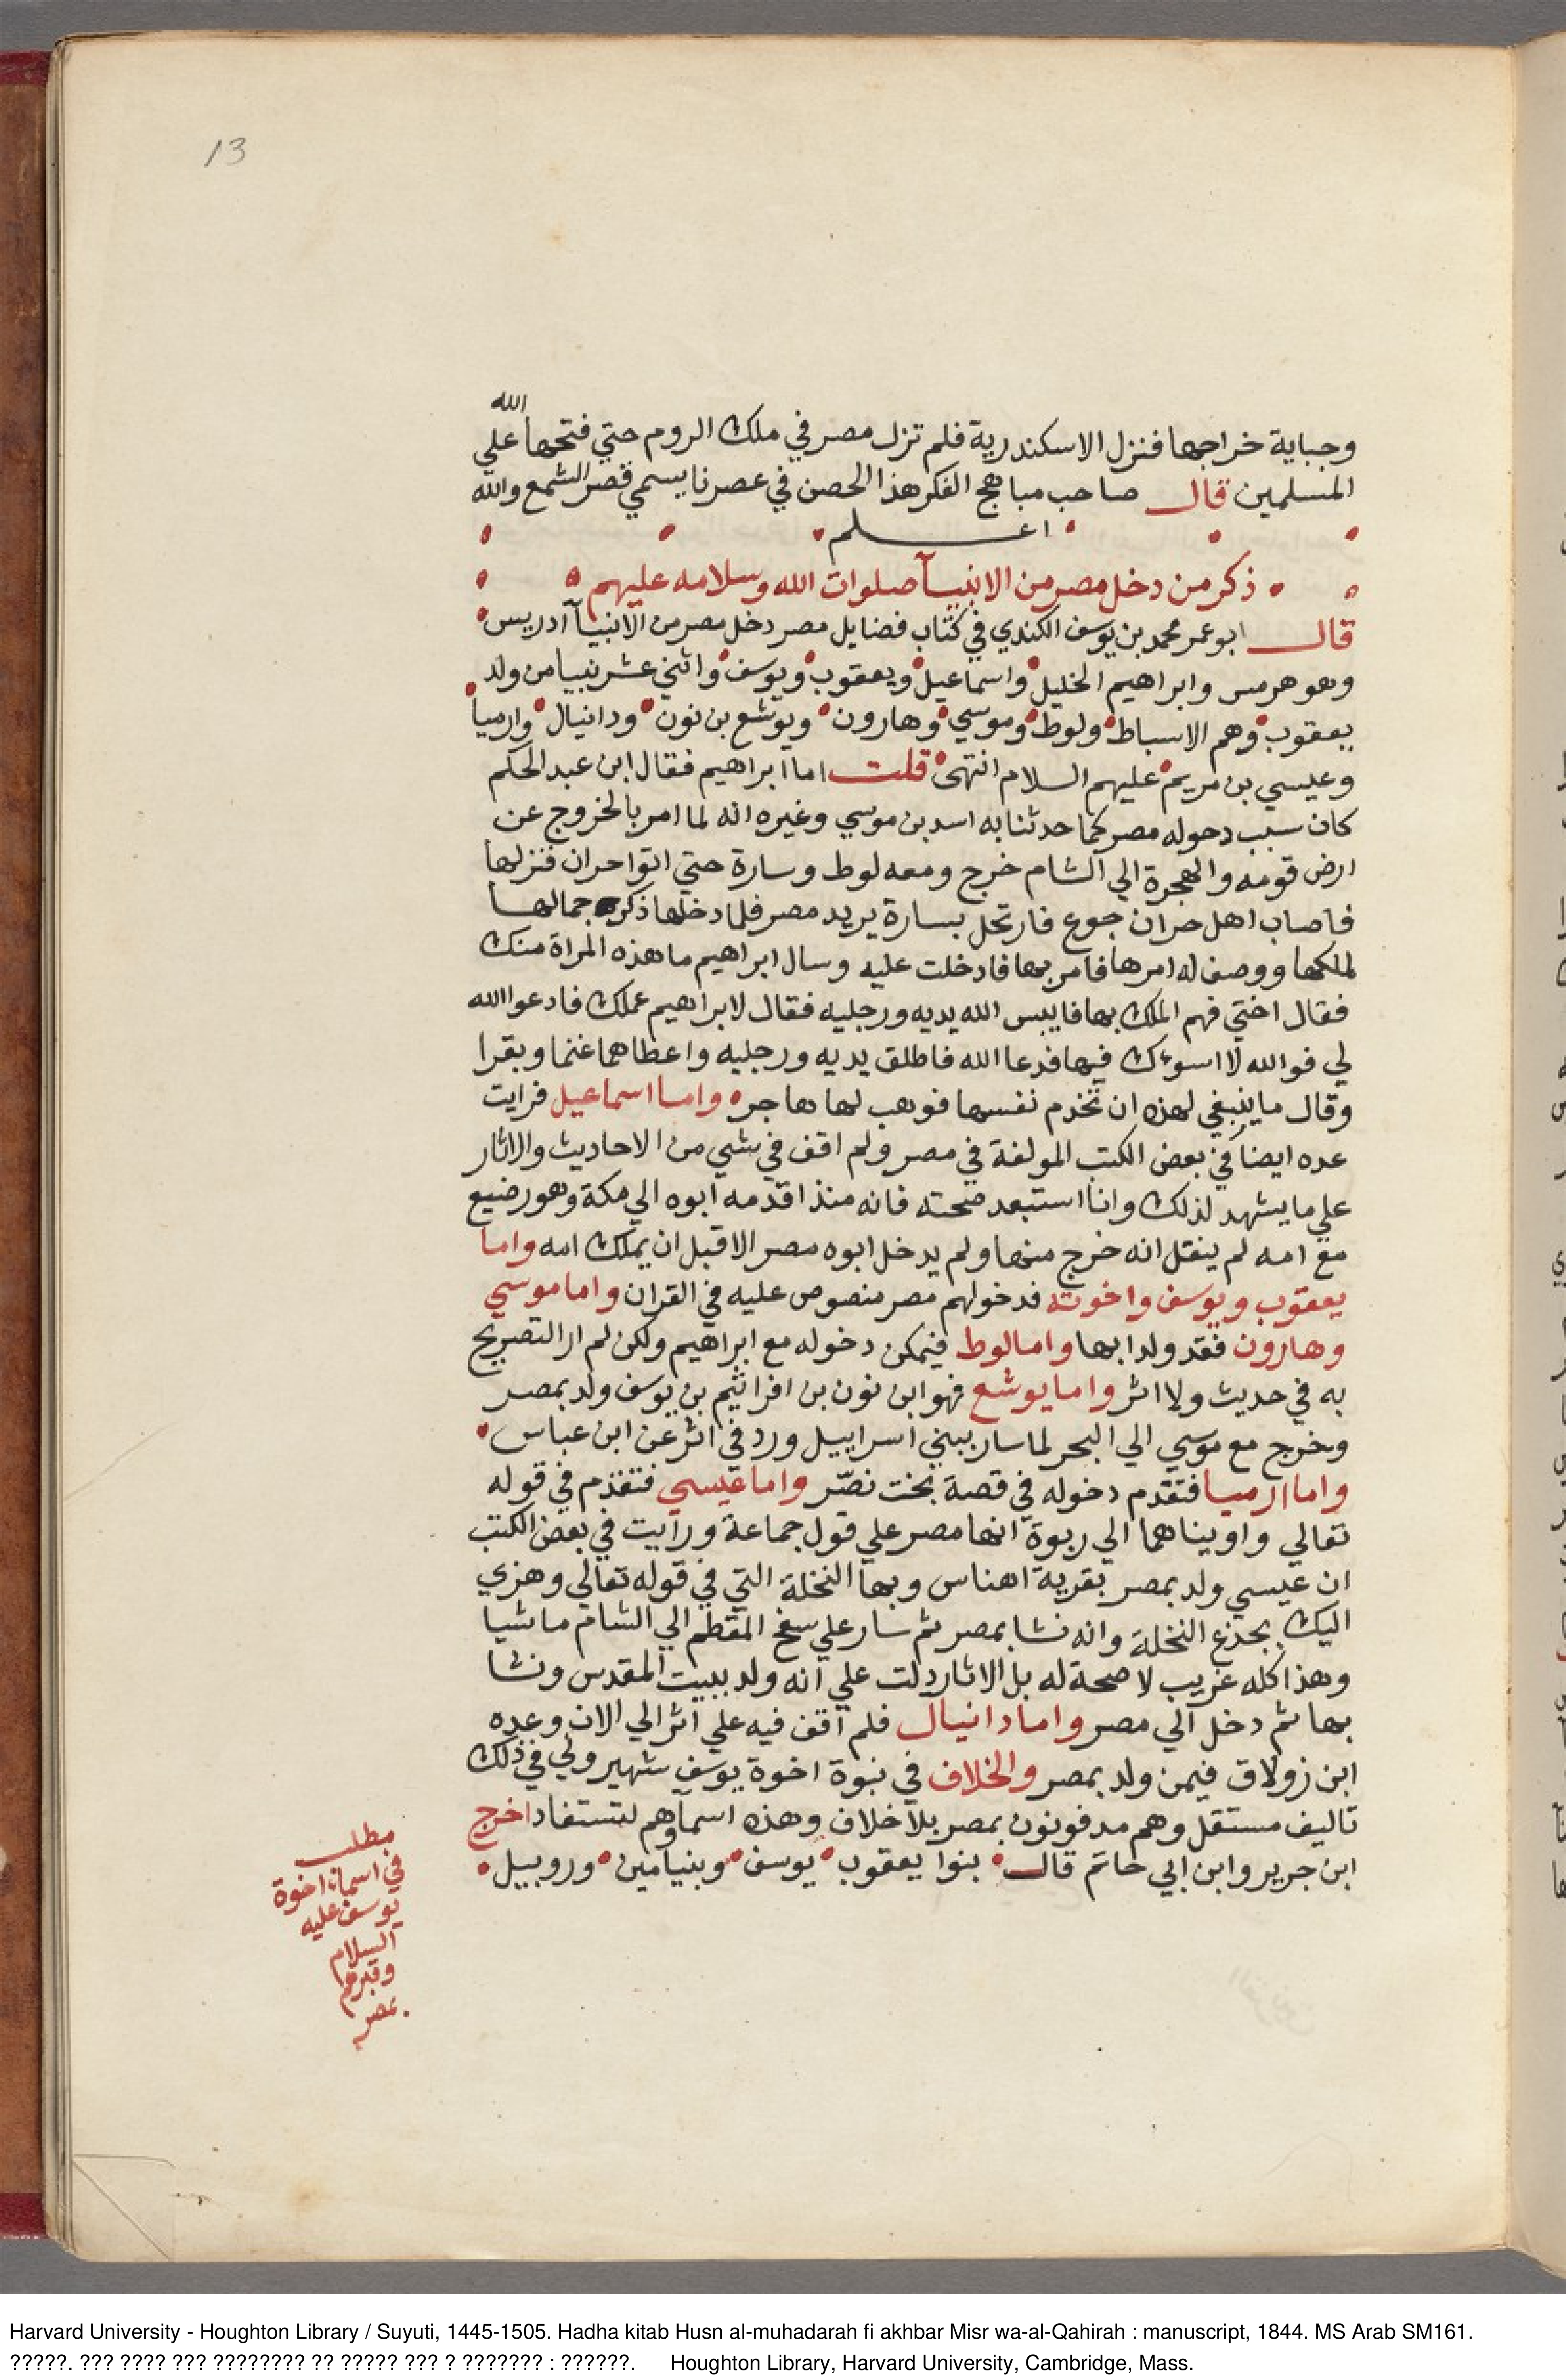 13
وجباية خراجها فنزل الاسكندرية فلم تزل مصر في ملك الروم حتي فتحها الله علي
المسلمين قال صاحب مباهج الفكر هذا الحصن في عصرنا يسمي قصر الشمع والله
اعلم
ذكر من دخل مصر من الانبيآ صلوات الله وسلامه عليهم
قال ابو عمر محمد بن يوسف الكندي في كتاب فضايل مصر دخل مصر من الانبيآ ادريس
وهو هرمس وابراهيم الخليل واسماعيل ويعقوب ويوسف واثني عشر نبيا من ولد
يعقوب وهم الاسباط ولوط وموسي وهارون ويوشع بن نون ودانيال وارميا
وعيسي بن مريم عليهم السلام انتهى قلت اما ابراهيم فقال ابن عبد الحكم
كان سبب دحوله مصر كما حدثنا به اسد بن موسي وغيره انه لما امر بالخروج عن
ارض قومه والهجرة الي الشام خرج ومعه لوط وسارة حتي اتوا حران فنزلها
فاصاب اهل حران جوع فارتحل بسارة يريد مصر فلما دخلها ذكر جمالها
لملكها ووصف له امرها فامر بها فادخلت عليه وسال ابراهيم ما هذه المراة منك
فقال اختي فهم الملك بها فايبس الله يديه ورجليه فقال لابراهيم عملك فادعوا الله
لي فوالله لا اسوؤك فيها فدعا الله فاطلق يديه ورجليه واعطاهما غنما وبقرا
وقال ما ينبغي لهذه ان تخدم نفسها فوهب لها هاجر واما اسماعيل فرايت
عده ايضا في بعض الكتب المولفة في مصر ولم اقف في شي من الاحاديث والاثار
علي ما يشهد لذلك وانا استبعد صحته فانه منذ اقدمه ابوه الي مكة وهو رضيع
مع امه لم ينقل انه خرج منها ولم يدخل ابوه مصر الا قبل ان يملك امه واما
يعقوب ويوسف واخوته فدخولهم مصر منصوص عليه في القران واما موسي
وهارون فقد ولدا بها واما لوط فيمكن دخوله مع ابراهيم ولكن لم ار التصريح
به في حديث ولا اثر واما يوشع فهو ابن نون بن افراثيم بن يوسف ولد بمصر
وخرج مع موسي الي البحر لما سار ببني اسراييل ورد في اثر عن ابن عباس
واما ارميا فتقدم دخوله في قصة بخت نصّر واما عيسي فتقدم في قوله
تعالي واويناهما الي ربوة انها مصر علي قول جماعة ورايت في بعض الكتب
ان عيسي ولد بمصر بقرية اهناس وبها النخلة التي في قوله تعالي وهزي
اليك بجذع النخلة وانه نشا بمصر ثم سار علي سفح المقطم الي الشام ماشيا
وهذا كله غريب لا صحة له بل الاثار دلت علي انه ولد ببيت المقدس ونشا
بها ثم دخل الي مصر واما دانيال فلم اقف فيه علي اثر الي الان وعده
ابن زولاق فيمن ولد بمصر والخلاف في نبوة اخوة يوسف شهير ولي في ذلك
تاليف مستقل وهم مدفونون بمصر بلا خلاف وهذه اسماوهم لتستفاد اخرج
ابن جرير وابن ابي حاتم قال بنوا يعقوب يوسف وبنيامين وروبيل
مطلب
في اسماء اخوة
يوسف عليه
السلام
وقبرهم
بمصر
Harvard University - Houghton Library / Suyuti, 1445-1505. Hadha kitab Husn al-muhadarah fi akhbar Misr wa-al-Qahirah : manuscript, 1844. MS Arab SM161.
?????. ??? ???? ??? ???????? ?? ????? ??? ? ??????? : ??????. Houghton Library, Harvard University, Cambridge, Mass.